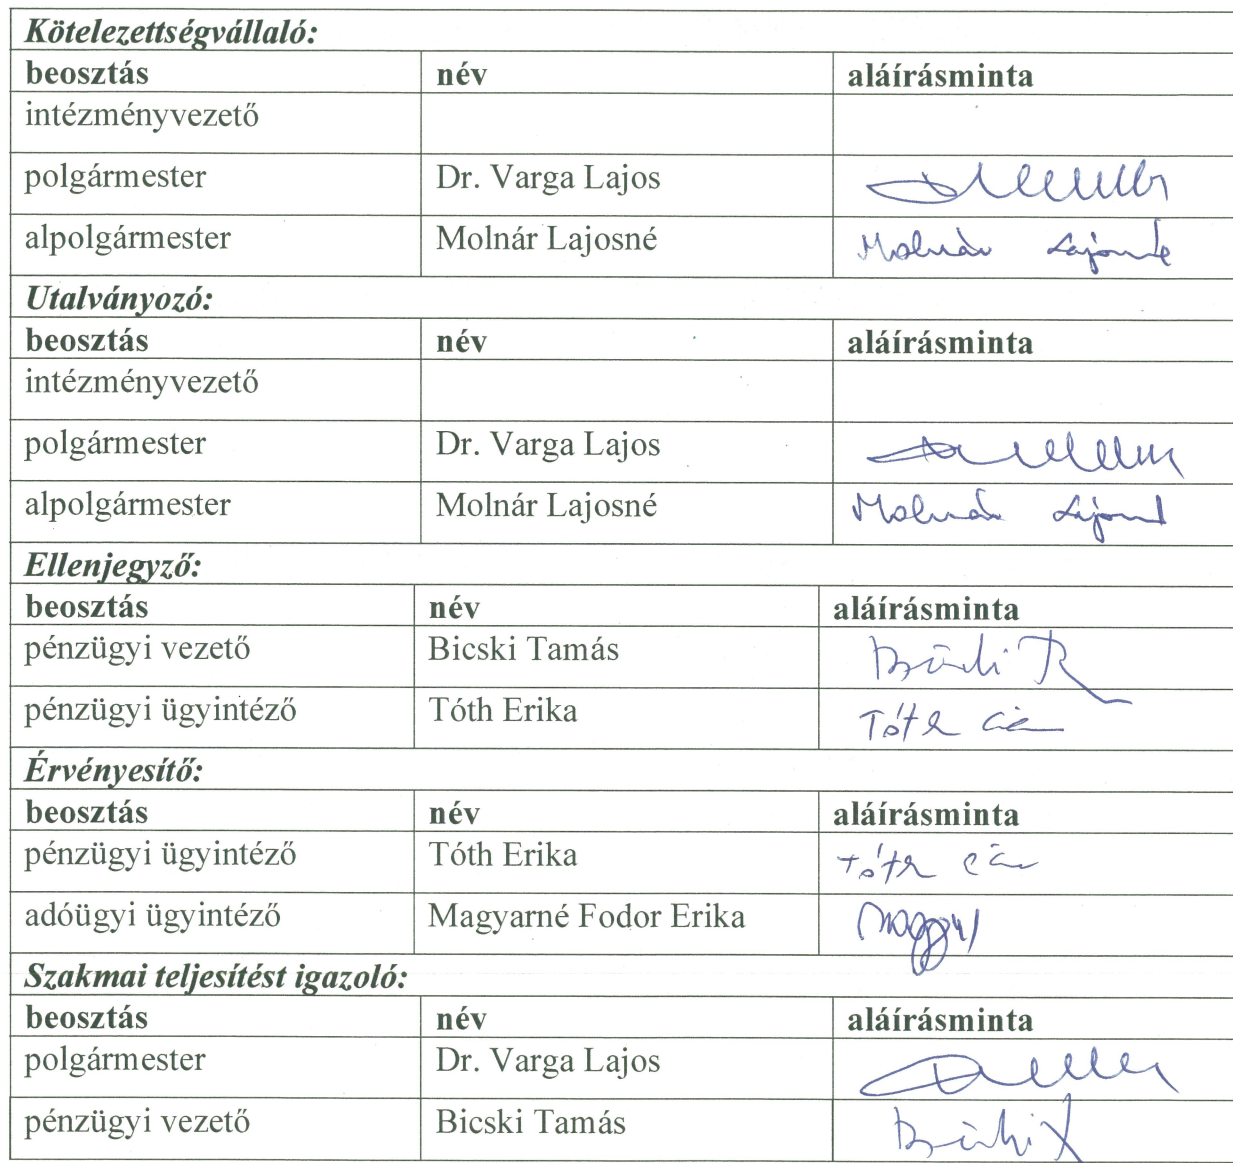 Kötelezettségvállaló:
beosztás név aláírásminta
intézményvezető
polgármester Dr. Varga Lajos
alpolgármester Molnár Lajosné Molnár Lajosné
Utalványozó:
beosztás név aláírásminta
intézményvezető
polgármester Dr. Varga Lajos
alpolgármester Molnár Lajosné Molnár
Ellenjegyző:
beosztás név aláírásminta
pénzügyi vezető Bicski Tamás
pénzügyi ügyintéző Tóth Erika Tóth
Érvényesítő:
beosztás név aláírásminta
pénzügyi ügyintéző Tóth Erika Tóth
adóügyi ügyintéző Magyarné Fodor Erika
Szakmai teljesítést igazoló:
beosztás név aláírásminta
polgármester Dr. Varga Lajos
pénzügyi vezető Bicski Tamás